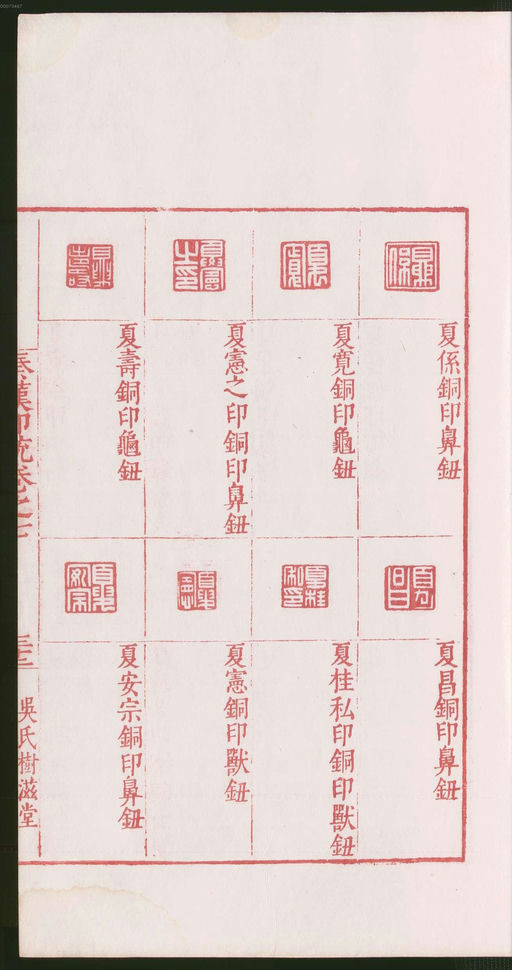 00073487
夏係銅印鼻鈕
夏寬銅印龜鈕
夏憲之印銅印鼻鈕
夏壽銅印龜鈕
夏昌銅印鼻鈕
夏桂私印銅印獸鈕
夏憲銅印獸鈕
夏安宗銅印鼻鈕
秦漢印統卷之七
吳氏樹滋堂